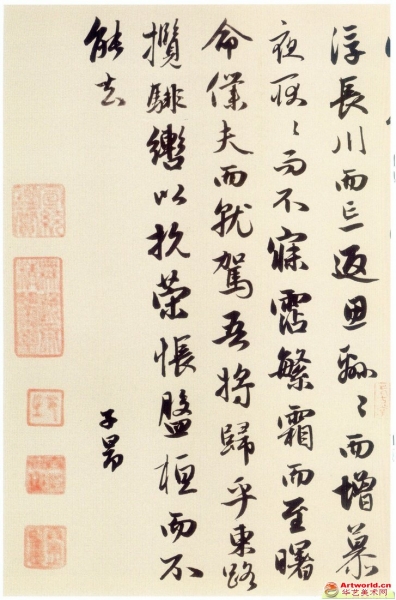 浮長川而忘返思緜〻而增慕
夜耿〻而不寐霑繁霜而至曙
命僕夫而就駕吾將歸乎東路
攬騑轡以抗策悵盤桓而不
能去
子昂
Artworld.cn
华艺美术网